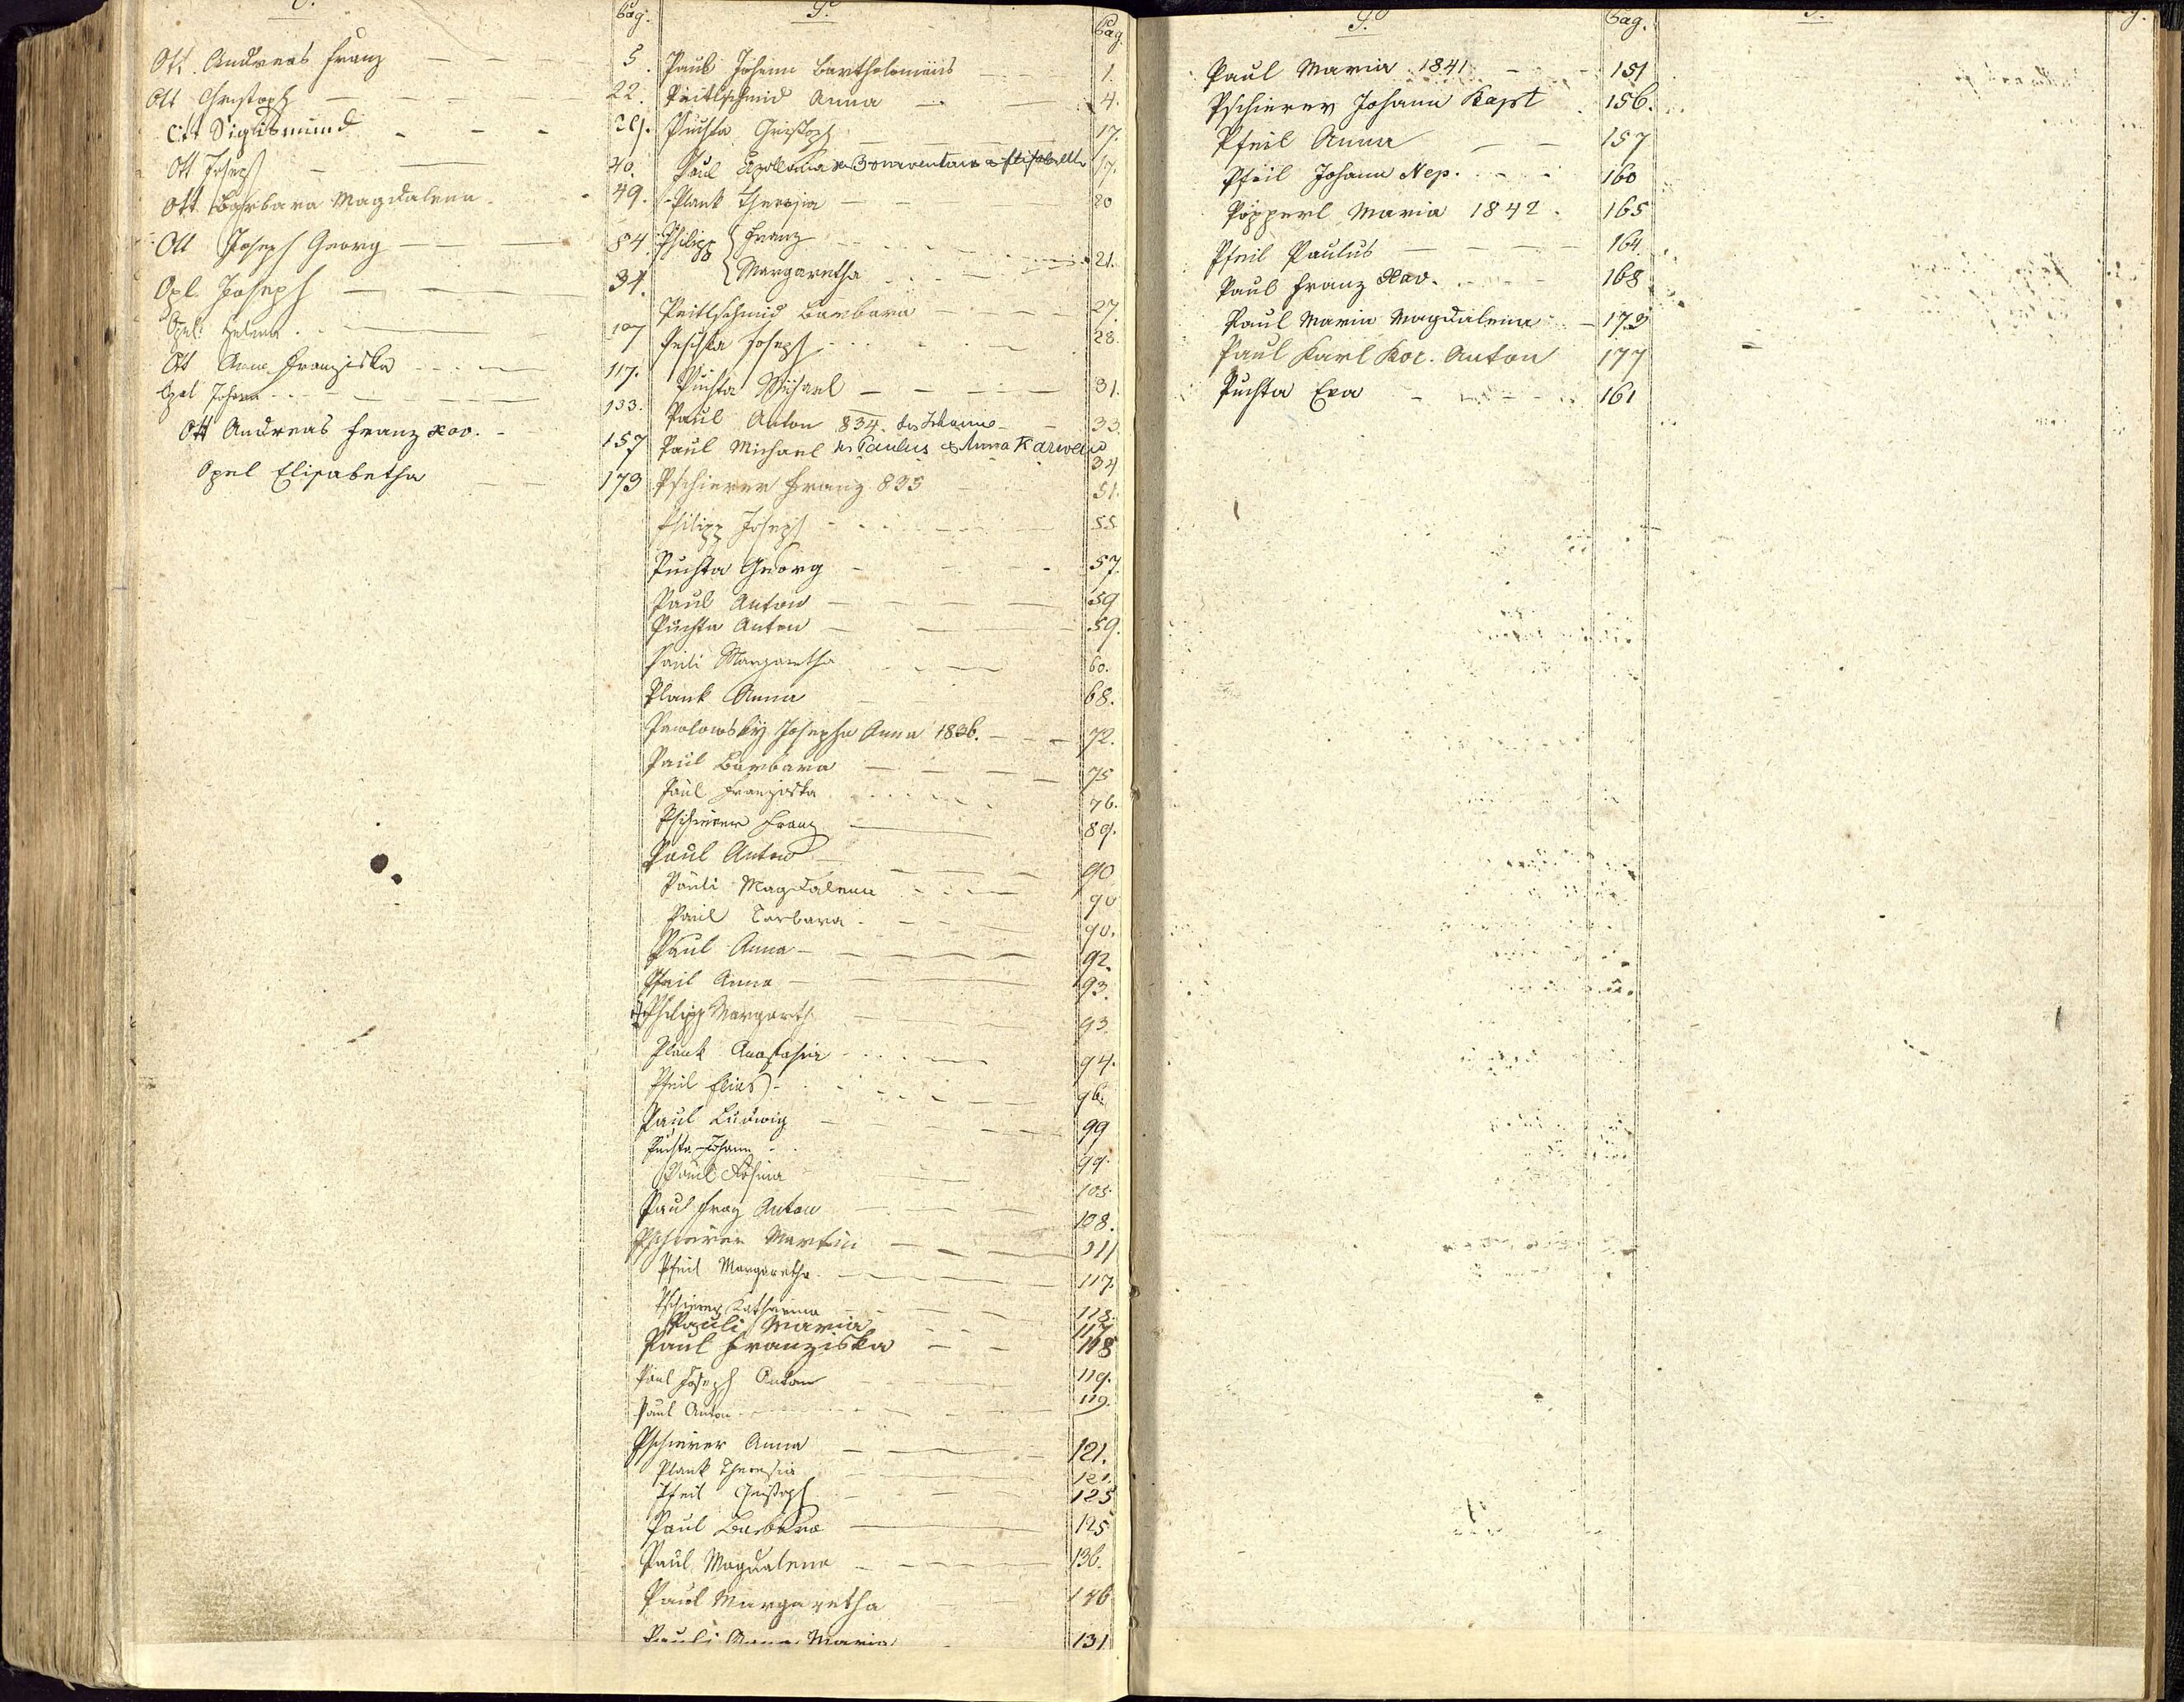 O.
Pag.
Ott Andreas Franz 5
Ott Christoph 22.
Ott Sigismund 29.
Ott Joseph 40.
Ott Barbara Magdalena 49.
Ott Joseph Georg 54
Opl Joseph 34.
Opel 107
Ott Anna Franziska 117.
Opel Johann 133.
Ott Andreas Franz Xav. 157
Opel Elisabetha 173
P.
Pag.
Paul Johann Bartholomäus 1.
Peitlschmid Anna 4.
Puchta Christoph 17.
Paul Apollonia Bonaventura 17.
Plank Theresia 20
Philipp { Franz
{ Margaretha 21.
Peitlschmid Barbara 27.
Peschka Joseph 28.
Puchta Michael 31.
Paul Anton 834. des Johanne 33
Paul Michael des Paulus & Anna 34
Pschierer Franz 835 51.
Philipp Joseph 55
Puchta Georg 57
Paul Anton 59
Puchta Anton 59.
Pauli Margaretha 60.
Plank Anna 68.
Pawlowsky Josepha Anna 1836. 72.
Paul Barbara 75
Paul Franziska 76.
Pschierer Franz 89.
Paul Anton 90
Pauli Magdalena 90
Paul Barbara 90.
Paul Anna 92.
Pfeil Anna 93.
Philipp Margareth 93.
Plank Anastasia 94.
Pfeil Elias 96.
Paul Ludwig 99
Puchta Johann 99.
Paul Rosina 105.
Paul Franz Anton 108.
Pschierer Martin 111
Pfeil Margaretha 117.
Pschierer Katharina 113.
Pauli Maria 117
Paul Franziska 118
Paul Joseph Anton 119.
Paul Anton 119.
Pschierer Anna 121.
Plank Theresia 121.
Pfeil Christoph 125
Paul Barbara 125
Paul Magdalena 136.
Paul Margaretha 146
Pauli Anna Maria 131
P.
Pag.
Paul Maria 1841 151
Pschierer Johann Bapt 156.
Pfeil Anna 157
Pfeil Johann Nep. 160
Pöpperl Maria 1842. 165
Pfeil Paulus 164
Paul Franz Xav. 168
Paul Maria Magdalena 173
Paul Karl Bor. Anton 177
Puchta Eva 161